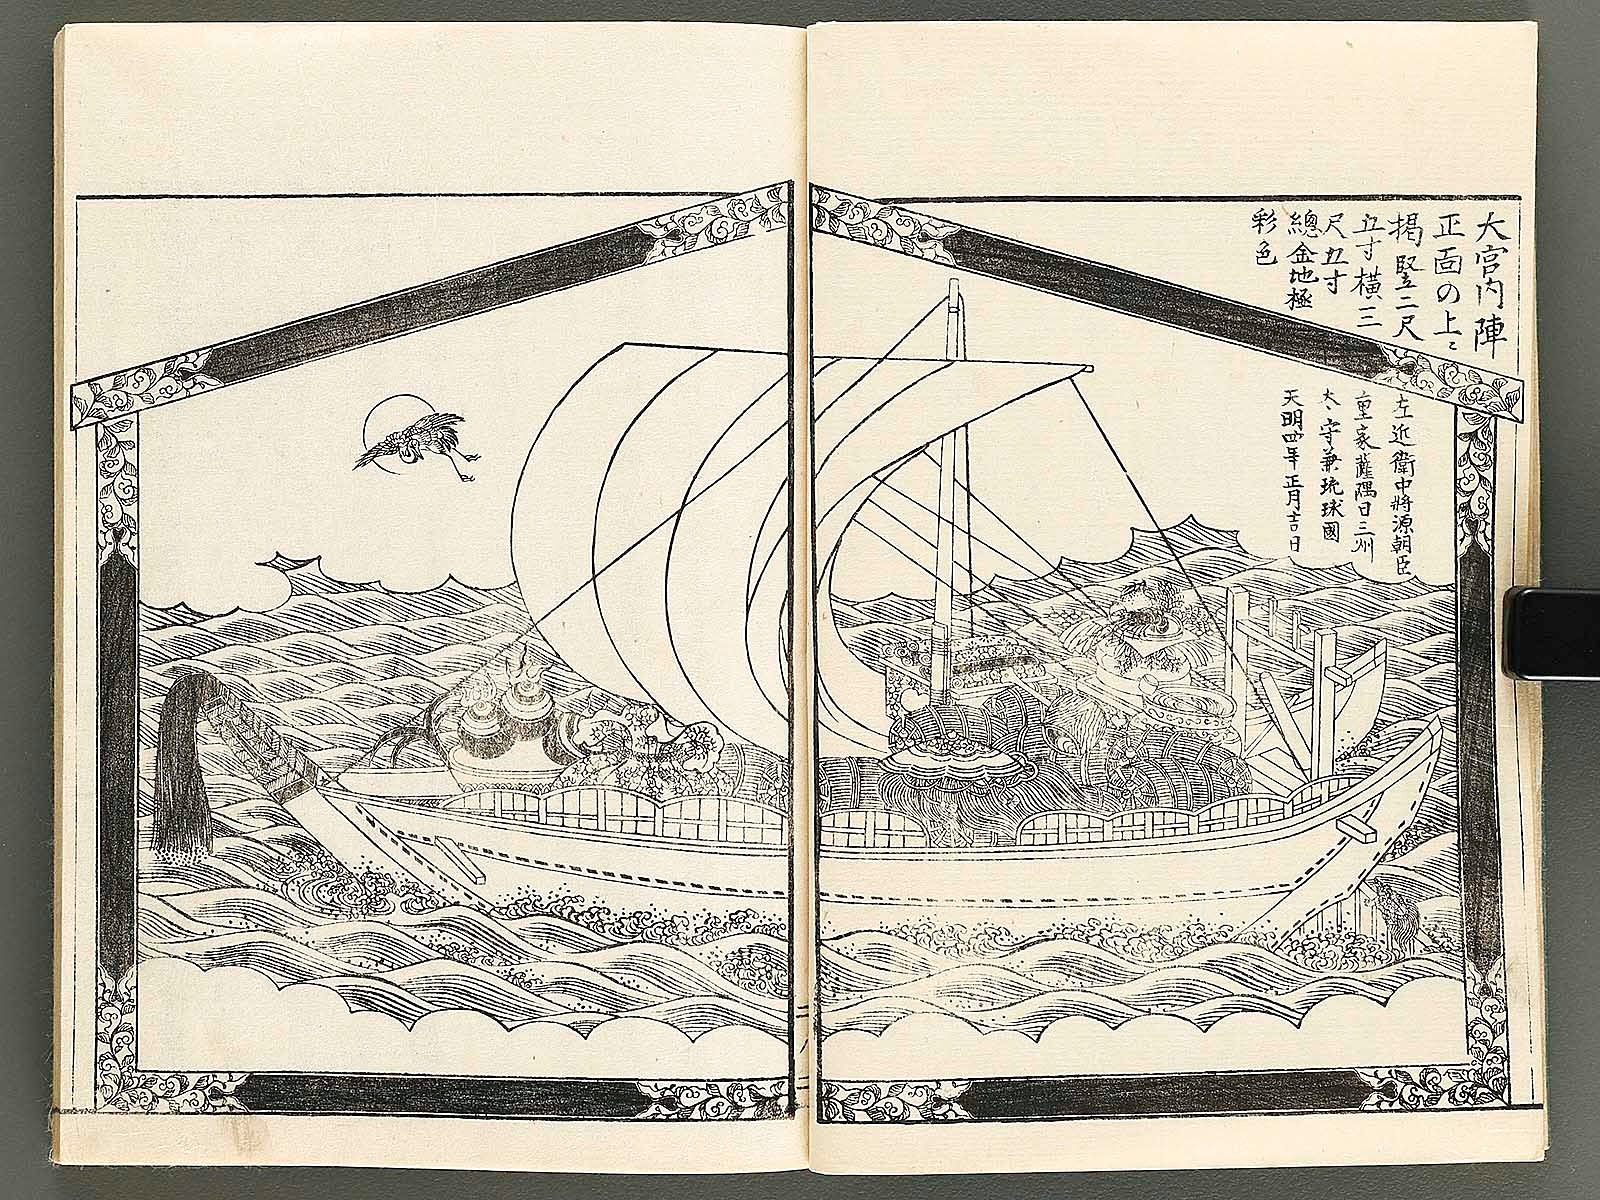 大宮内陣
正面の上ニ
掲竪二尺
五寸横三
尺五寸
總金地極
彩色
左近衛中將源朝臣
重豪薩隅日三州
大守兼琉球國
天明四年正月吉日